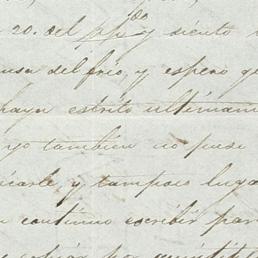 20. del ppdo y siento
causa del frio, y espero qe
haya escrito ultimam
yo tambien no puse
carle, y tampoco luga
continuo escribir par